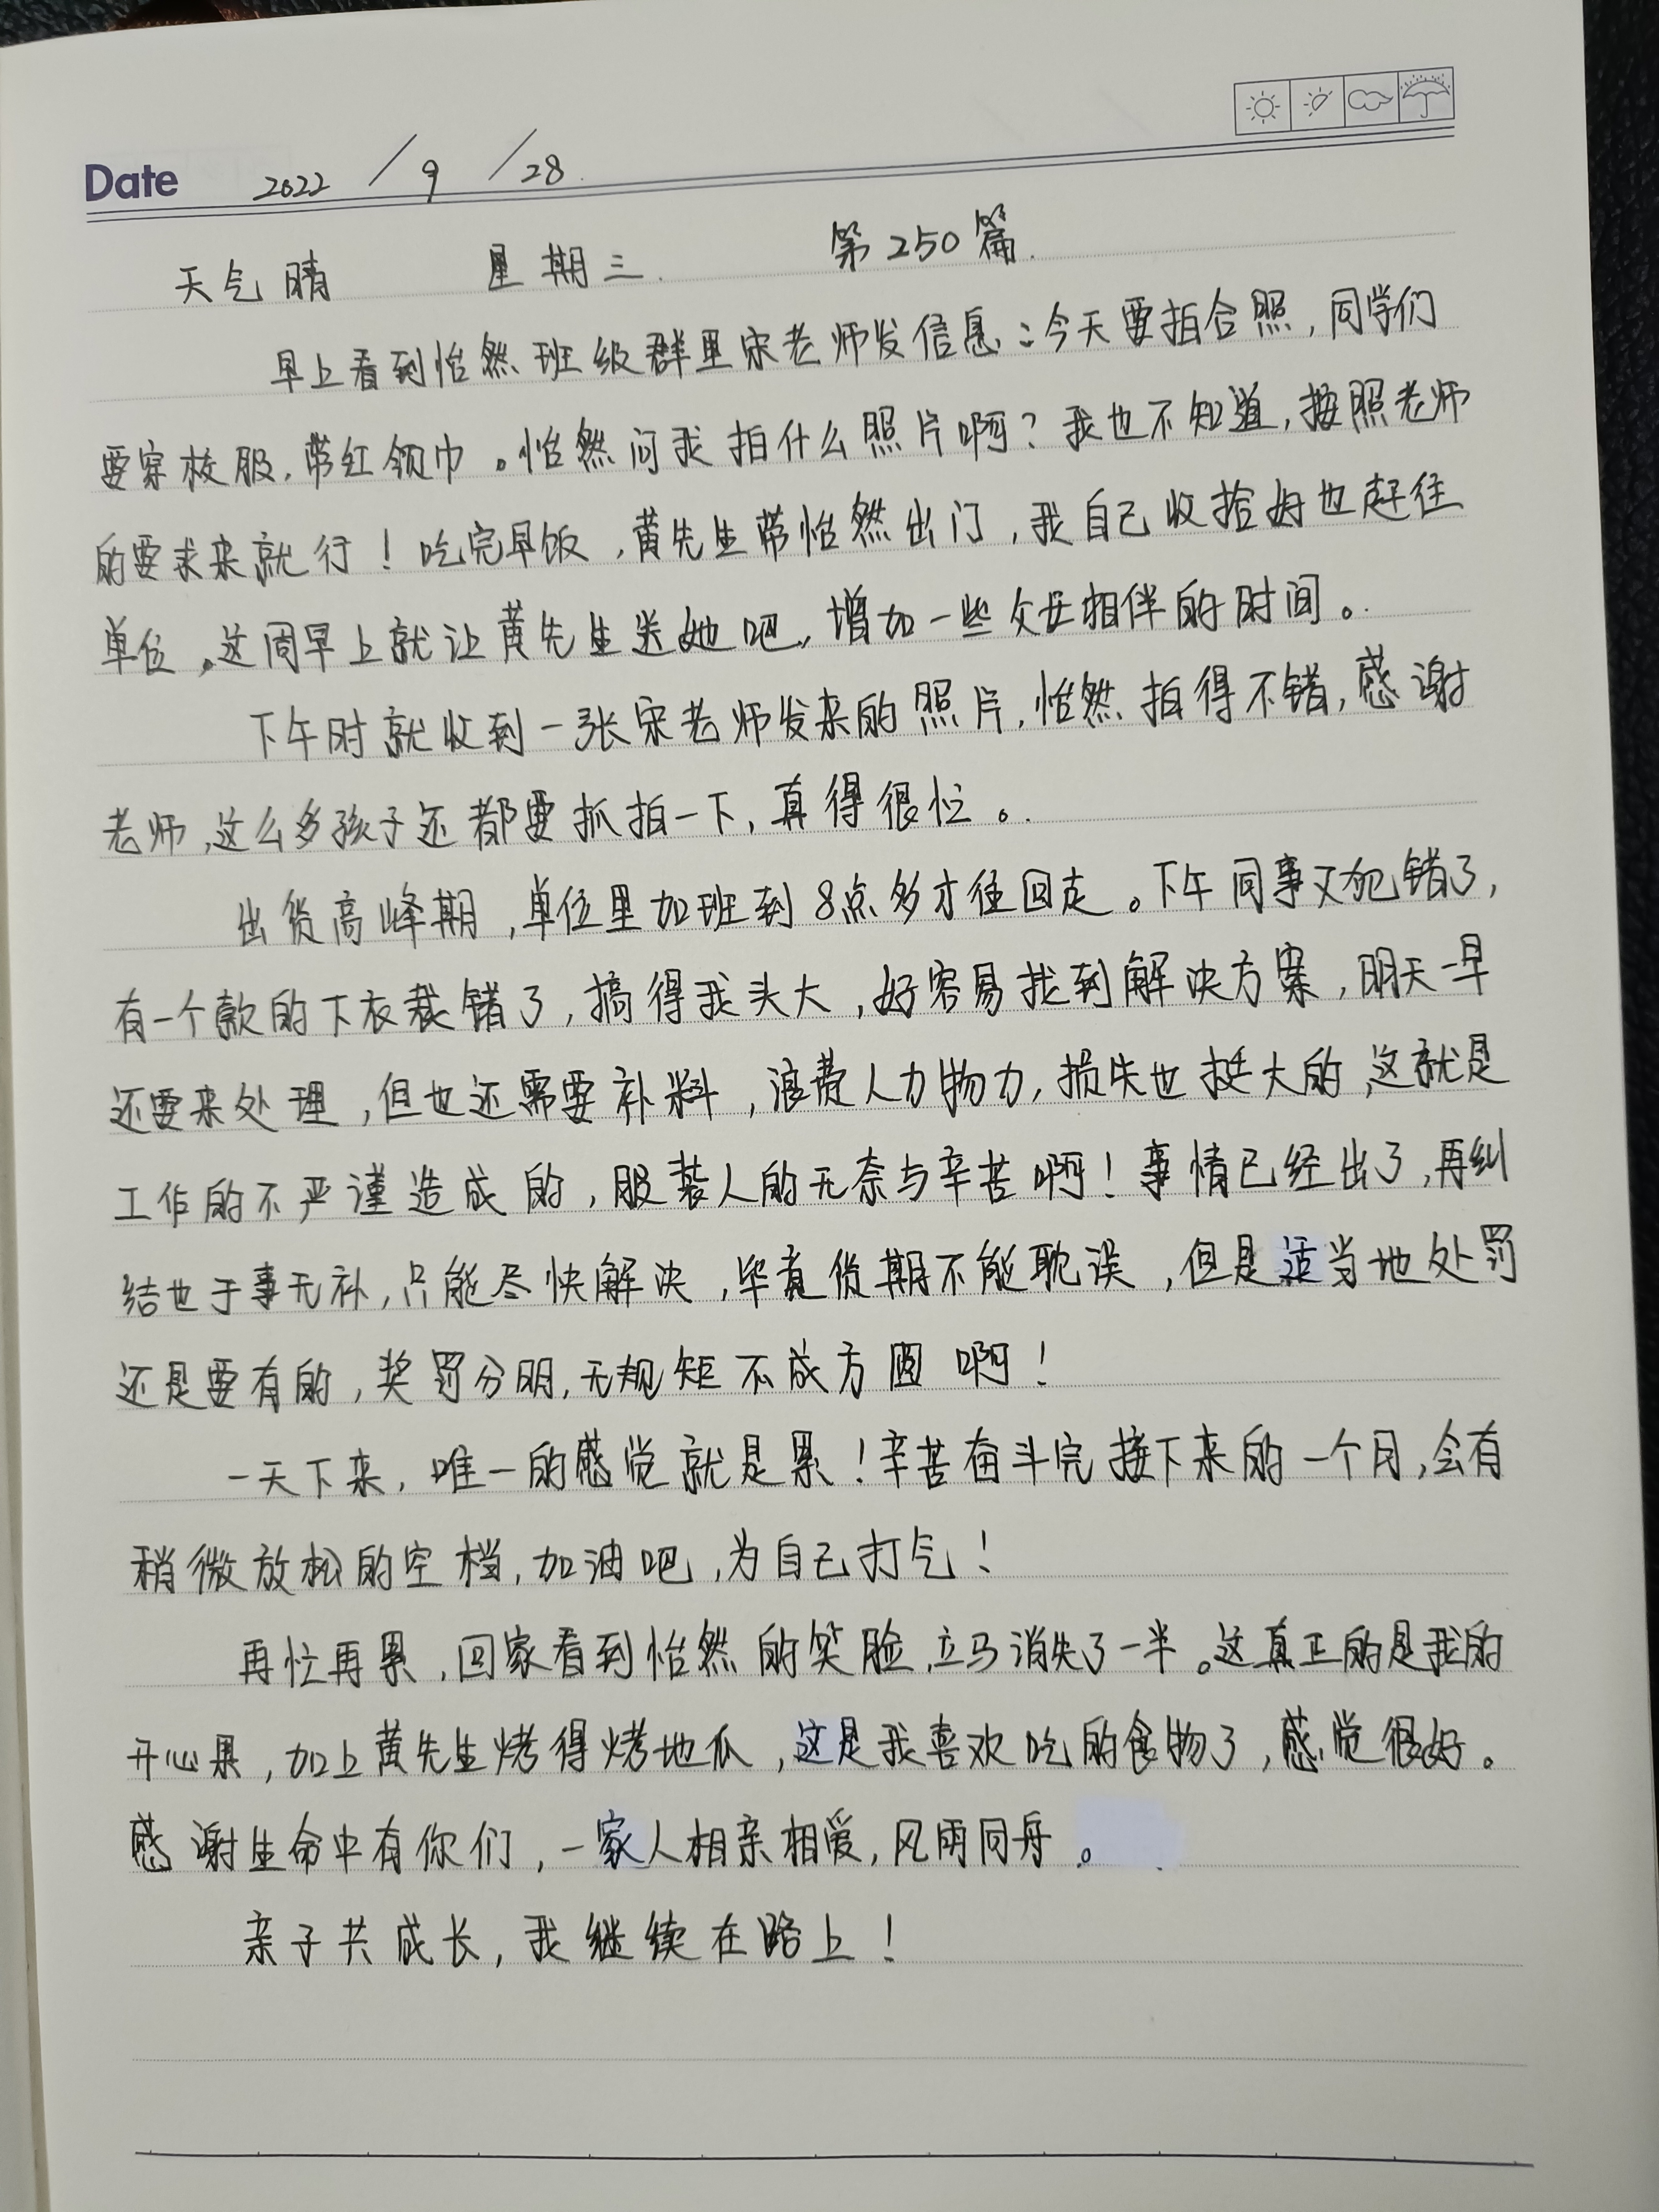 Date 2022/9/28
天气晴 星期三. 第250篇.
早上看到怡然班级群里宋老师发信息：今天要拍合照，同学们
要穿校服，带红领巾。怡然问我拍什么照片啊？我也不知道，按照老师
的要求来就行！吃完早饭，黄先生带怡然出门，我自己收拾好也赶往
单位。这周早上就让黄先生送她吧，增加一些父女相伴的时间。
下午时就收到一张宋老师发来的照片，怡然拍得不错，感谢
老师，这么多孩子还都要抓拍一下，真得很忙。
出货高峰期，单位里加班到8点多才往回走。下午同事又犯错了，
有一个款的下衣裁错了，搞得我头大，好容易找到解决方案，明天一早
还要来处理，但也还需要补料，浪费人力物力，损失也挺大的，这就是
工作的不严谨造成的，服装人的无奈与辛苦啊！事情已经出了，再纠
结也于事无补，只能尽快解决，毕竟货期不能耽误，但是适当地处罚
还是要有的，奖罚分明，无规矩不成方圆啊！
一天下来，唯一的感觉就是累！辛苦奋斗完接下来的一个月，会有
稍微放松的空档，加油吧，为自己打气！
再忙再累，回家看到怡然的笑脸，立马消失了一半。这真正的是我的
开心果，加上黄先生烤得烤地瓜，这是我喜欢吃的食物了，感觉很好。
感谢生命中有你们，一家人相亲相爱，风雨同舟。
亲子共成长，我继续在路上！